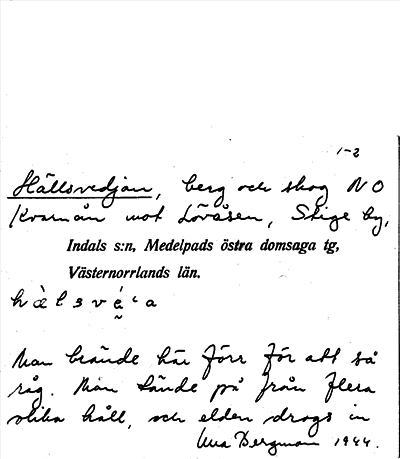 1-2
Hällsvedjan, berg och skog NO
Kvarnån mot Lövåsen, Stige by,
Indals s:n, Medelpads östra domsaga tg,
Västernorrlands län.
Man brände här förr för att så
råg. Man tände på från flera
olika håll, och elden drogs in
Bergman 1944.